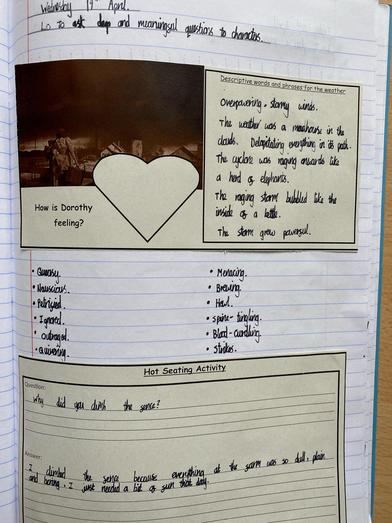 Wednesday 19th April.
Lo To ask deep and meaningful questions to characters.
Descriptive words and phrases for the weather
Overpowering, stormy winds.
The weather was a madhouse in the
clouds. Debapitating everything in its path.
The cyclone was raging onwards like
a herd of elephants.
The raging storm bubbled like the
inside of a kettle.
The storm grew powerful.
How is Dorothy
feeling?
• Queasy.
• Nauscious.
• Petrified.
• Ignored.
• Outraged.
• Quivering.
• Menacing.
• Brewing.
• Howl.
• Spine-tingling.
• Blood-curdling.
• Strikes.
Hot Seating Activity
Question:
Why did you climb the fence?
Answer:
I climbed the fence because everything at the farm was so dull, plain
and boring. I just needed a bit of fun that day.